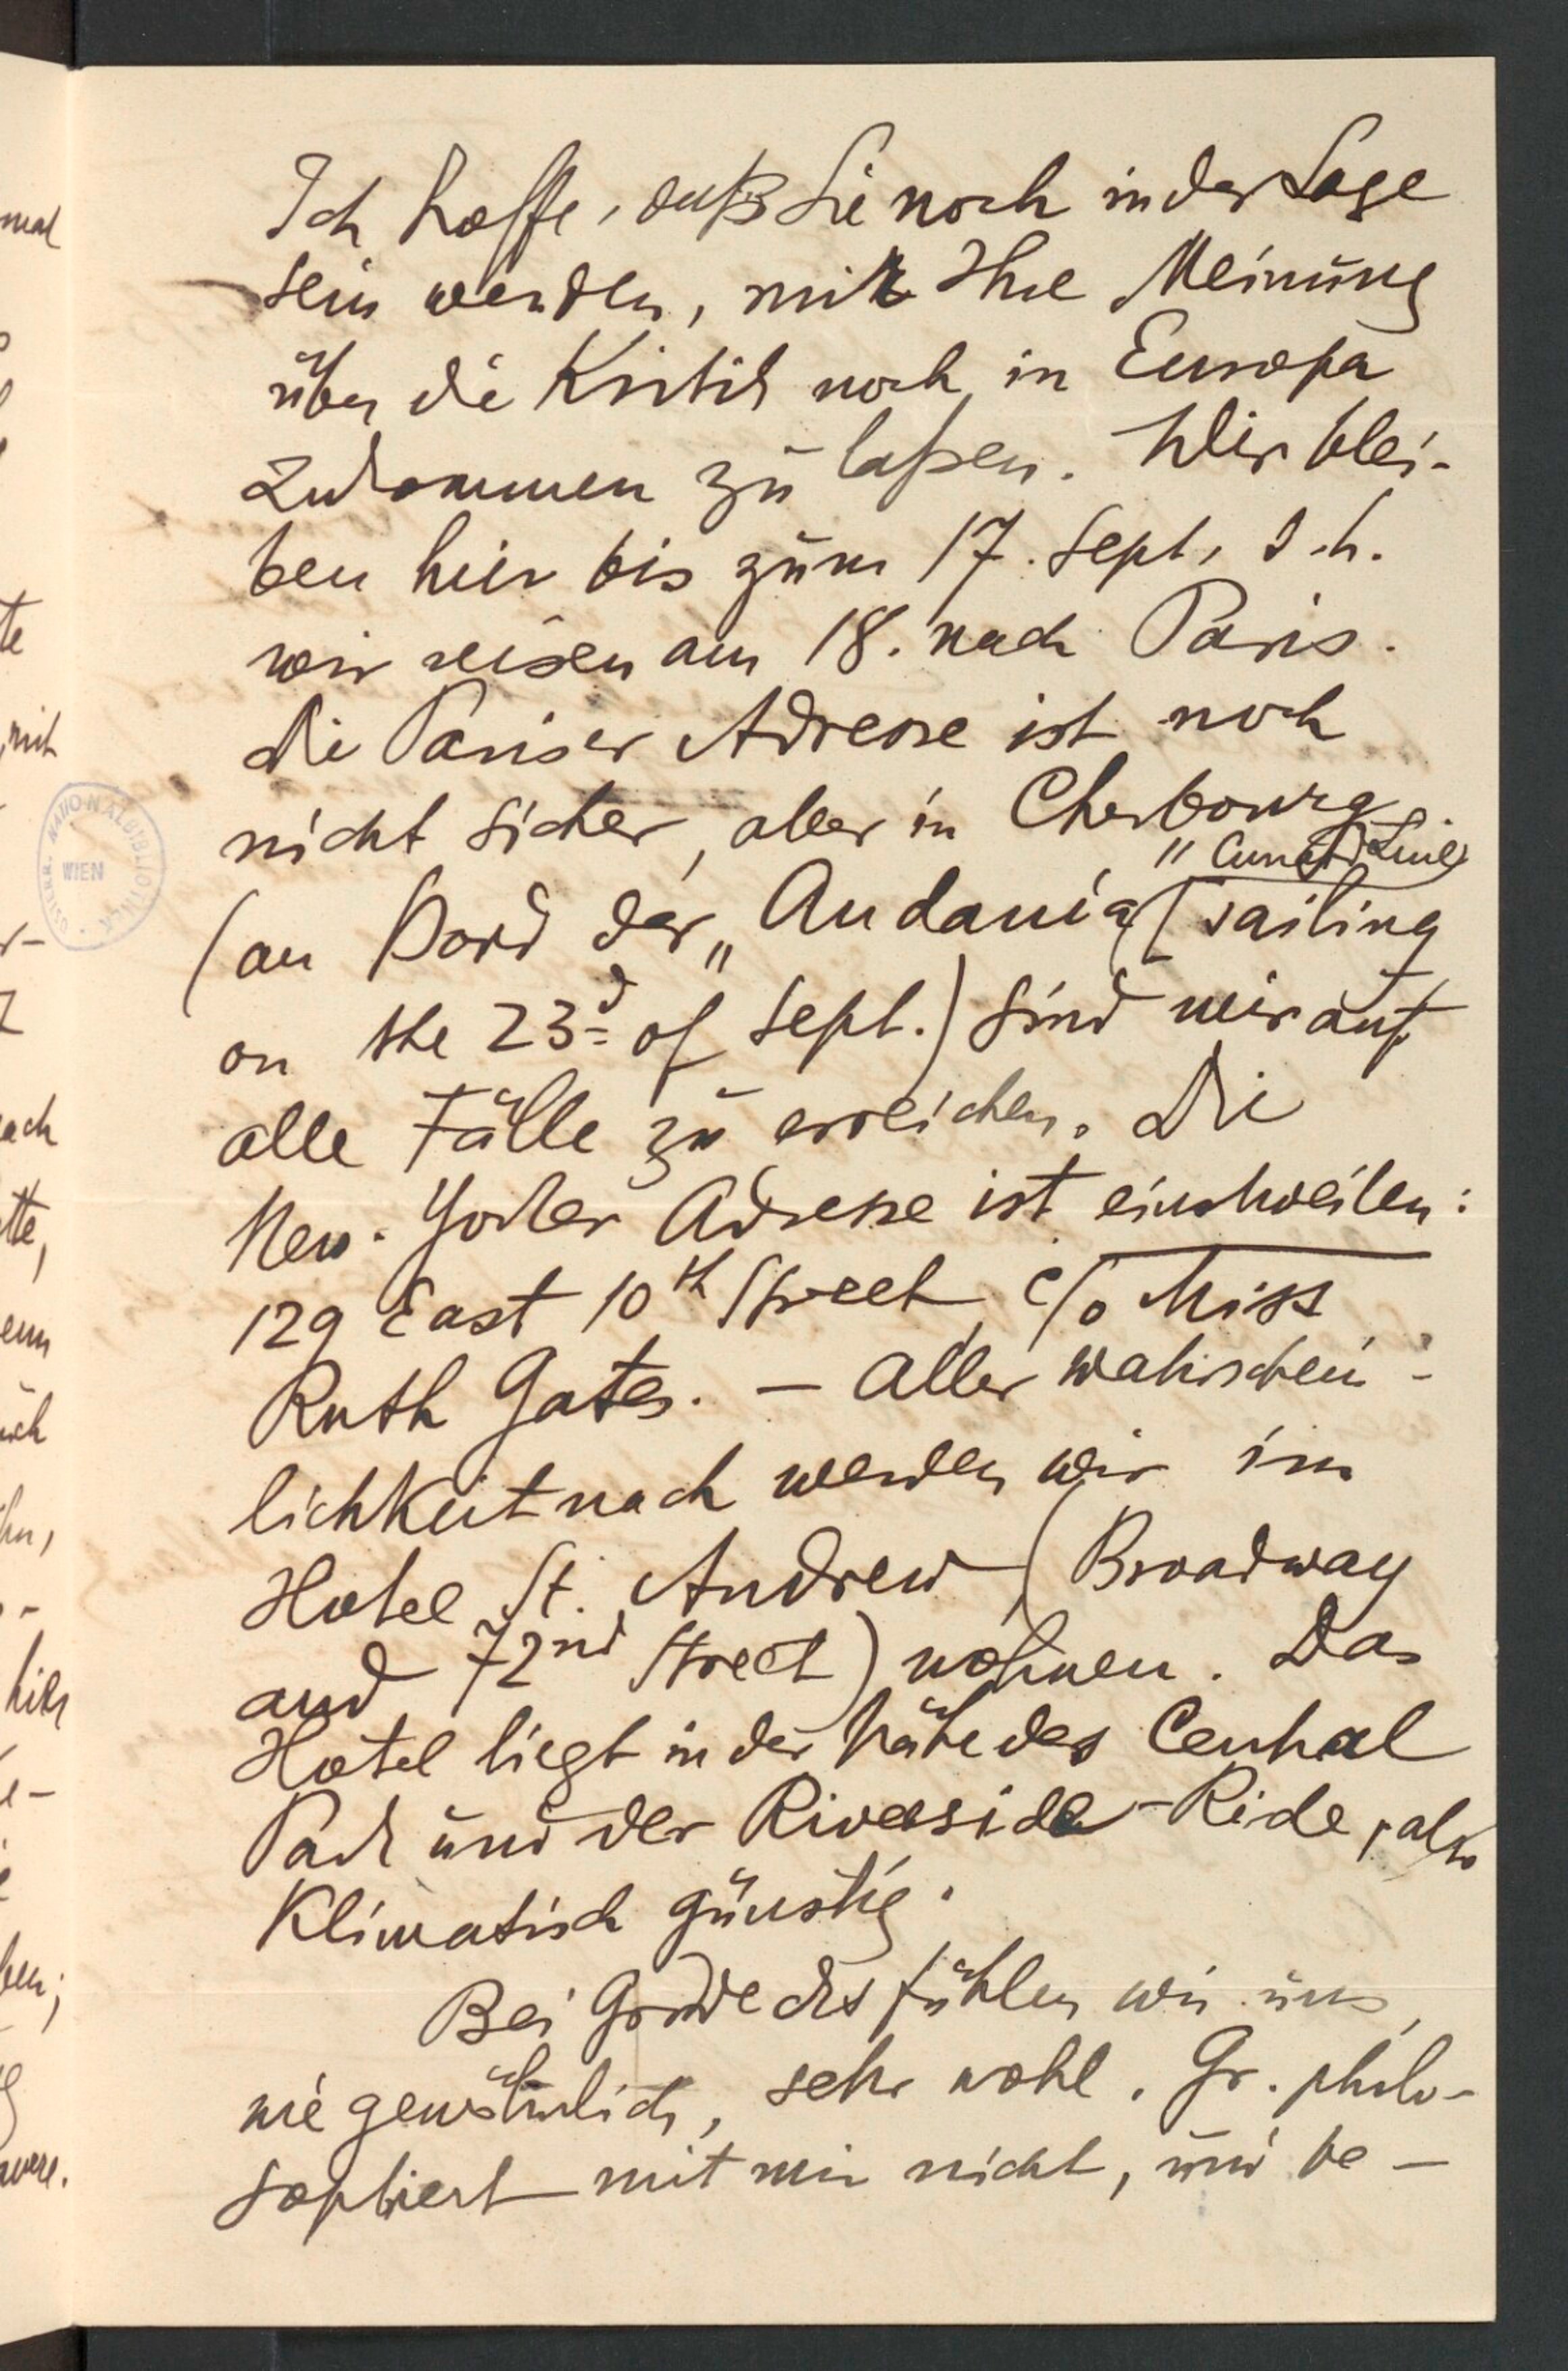 Ich hoffe, daß Sie noch in der Lage
sein werden, mir Ihre Meinung
über die Kritik noch in Europa
zukommen zu laßen. Wir blei-
ben hier bis zum 17. Sept, d.h.
wir reisen am 18. nach Paris.
Die Pariser Adresse ist noch
nicht sicher, aber in Cherbourg
(an Bord der „Andania" (Cunard Line) sailing
on the 23d of Sept.) sind wir auf
alle Fälle zu erreichen. Die
New-Yorker Adresse ist einstweilen:
129 East 10th Street c/o Miss
Ruth Gates. — Aller wahrschein-
lichkeit nach werden wir im
Hotel St. Andrew (Broadway
and 72nd Street) wohnen. Das
Hotel liegt in der Nähe des Central
Park und der Riverside-Ride, also
klimatisch günstig.
Bei Groddecks fühlen wir uns,
wie gewöhnlich, sehr wohl. Gr. philo-
sophiert mit mir nicht, und be-
mal
te
mit
ach
tte,
hier
ÖSTERR. NATIONALBIBLIOTHEK
WIEN